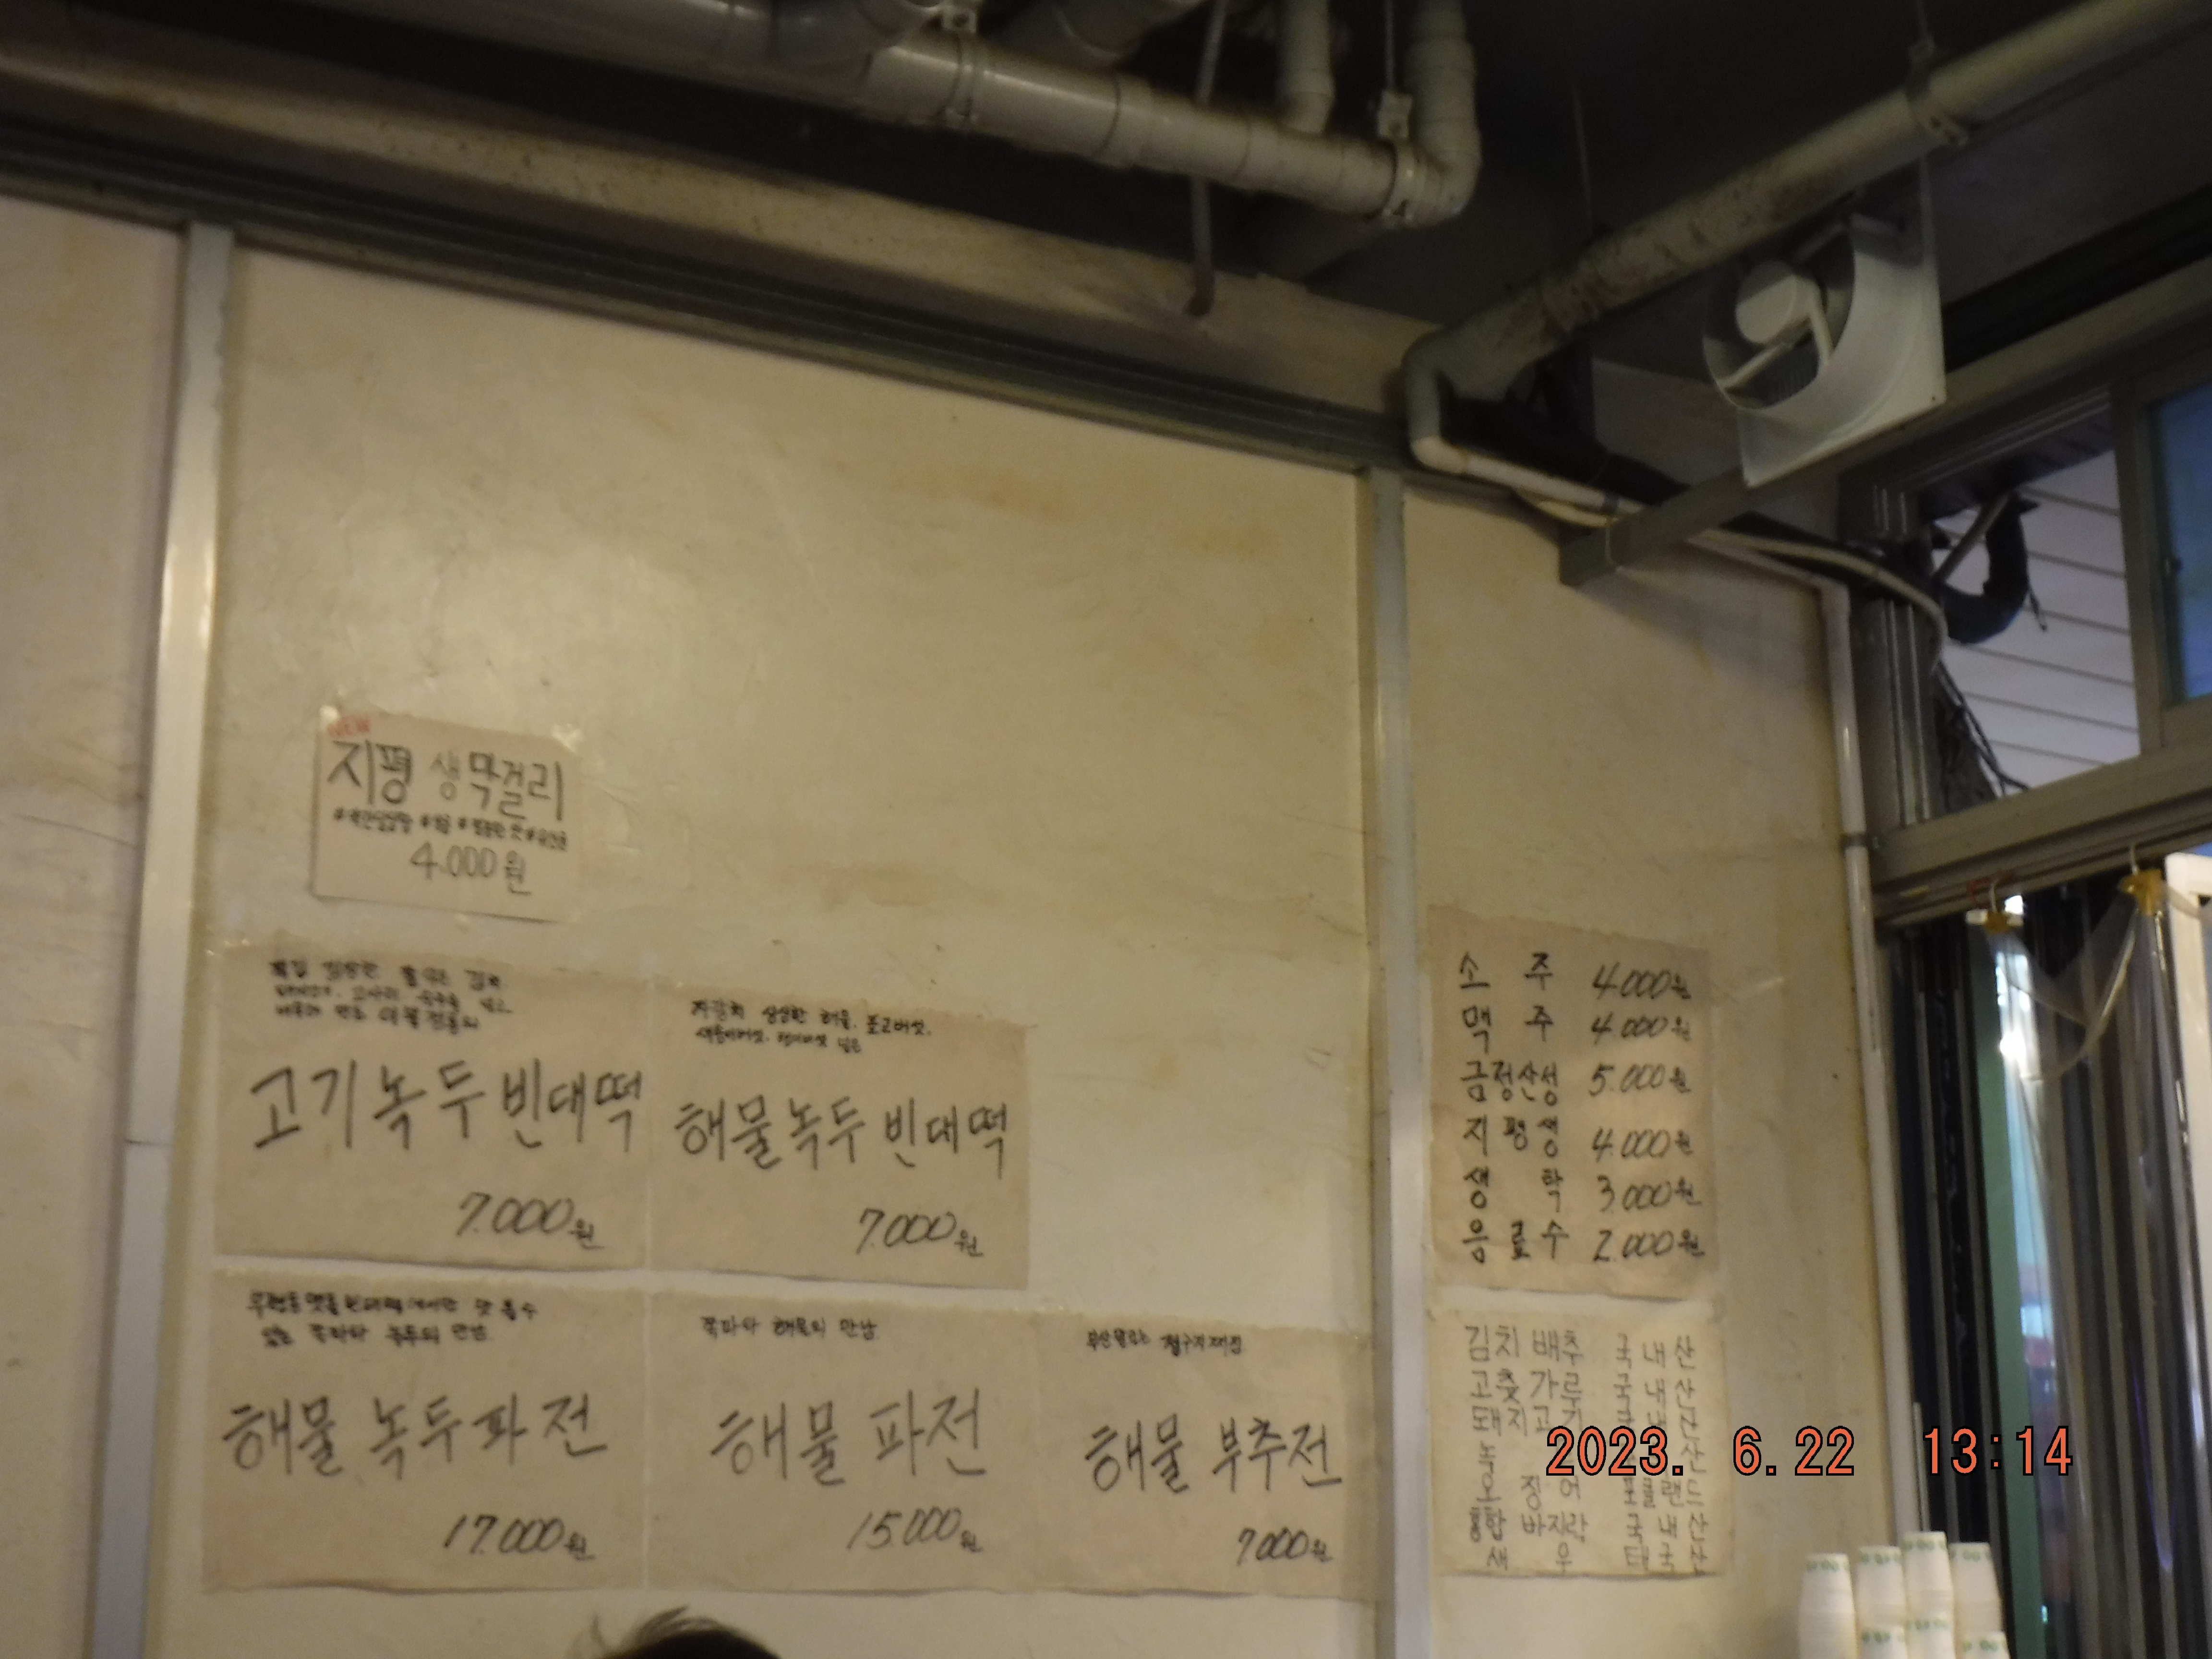 NEW
지평 생막걸리
4.000원
고기녹두빈대떡
7.000원
자갈치 싱싱한 해물, 표고버섯,
해물녹두빈대떡
7.000원
해물 녹두파전
17.000원
쪽파와 해물의 만남
해물 파전
15.000원
해물 부추전
7000원
소 주 4.000원
맥 주 4.000원
금정산성 5.000원
지평생 4.000원
생 탁 3.000원
음료수 2.000원
김치 배추 국내산
고춧가루 국내산
돼지고기 국내산
녹 산
오 징 어
홍합 바지락 국내산
새 우 태국산
2023. 6.22 13:14